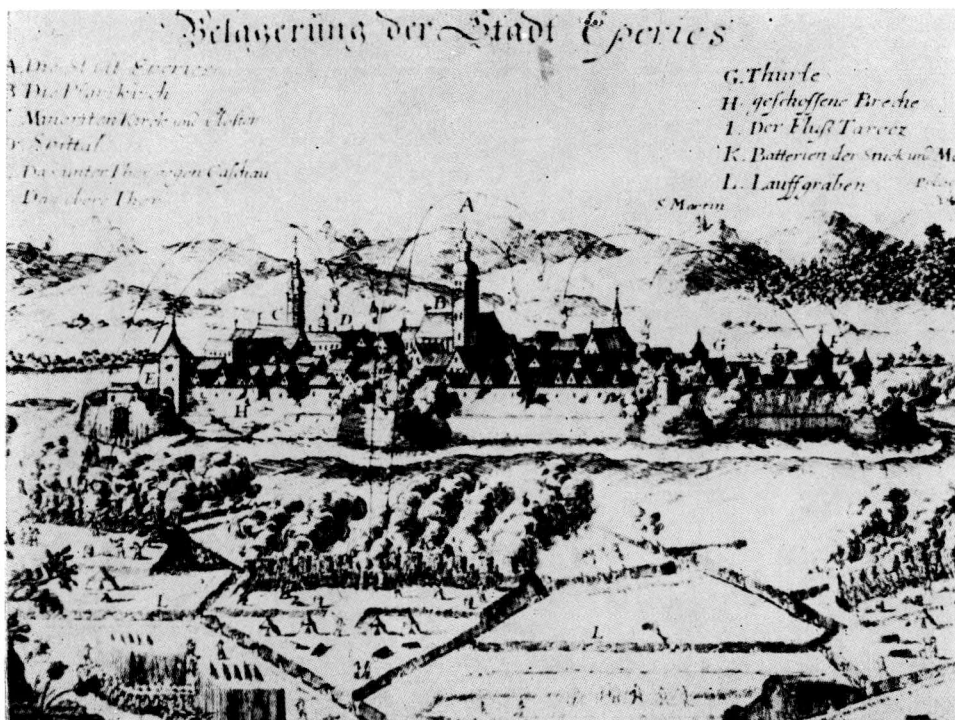 Belagerung der Stadt Eperies
A. Die Statt Eperies
B. Die Pfarrkirch
Minoriten Kirch und Closter
Spittal
Das unter Thor gegen Caschau
Das obere Thor
G. Thürle
H. geschossene Breche
I. Der Fluß Tarocz
K. Batterien der Stuck und
L. Lauffgräben
S. Martin
A
B
C
D
E
F
G
H
I
L